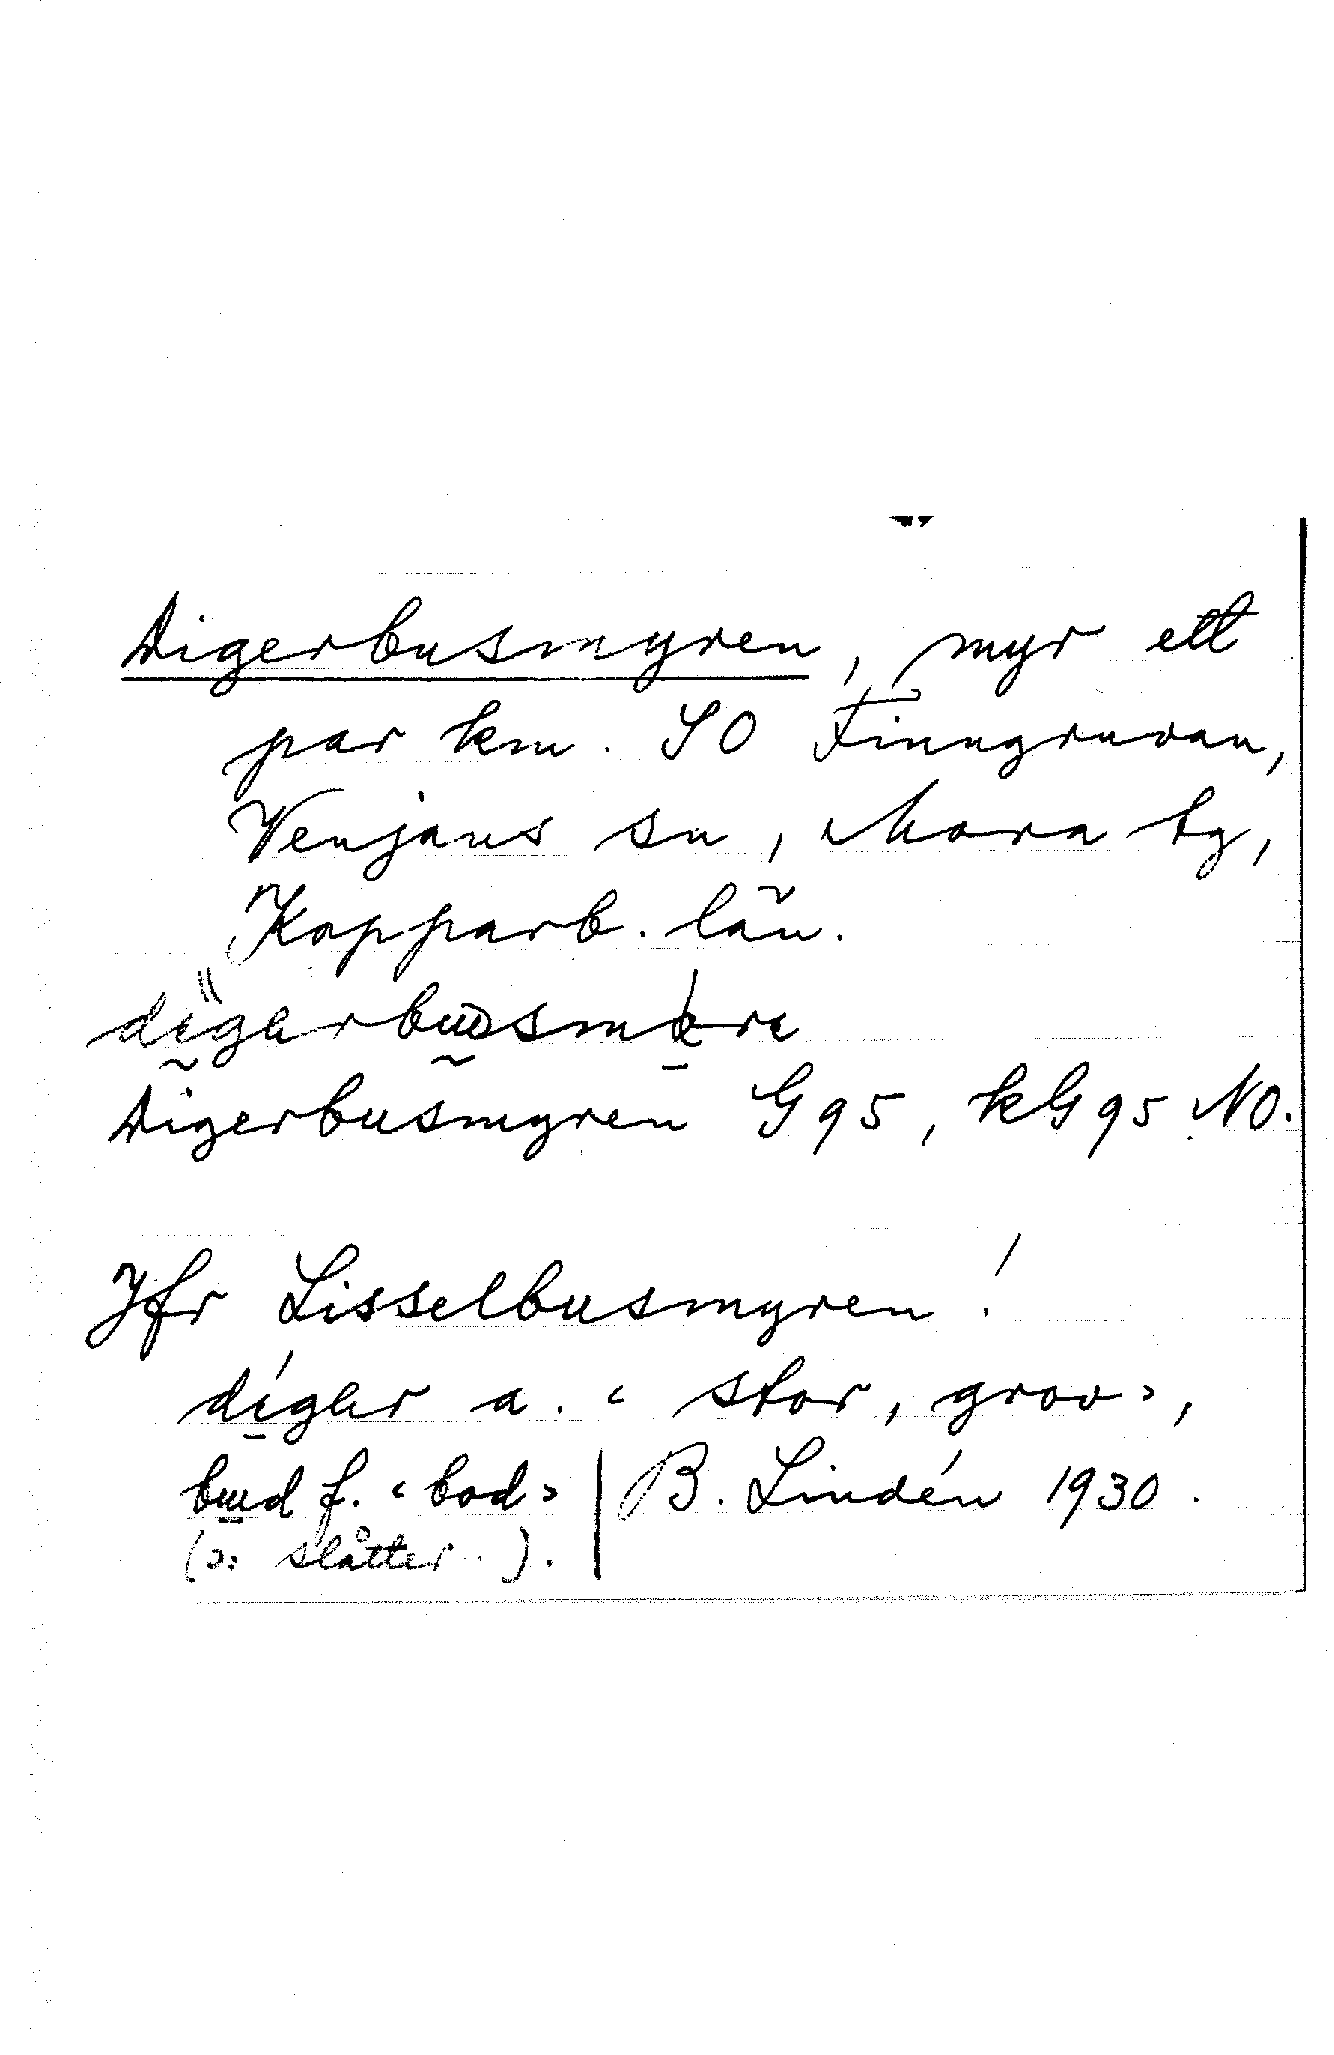 Digerbusmyren, myr ett
par km. SO Finngruvan,
Venjans sn, Mora tg,
Kopparb. län.
Digerbusmyren G95, kG95 NO.
Jfr Lisselbusmyren!
digər a. ‹ stor, grov ›,
bɯd f. ‹ bod › | B. Lindén 1930.
(ɔ: slåtter.).